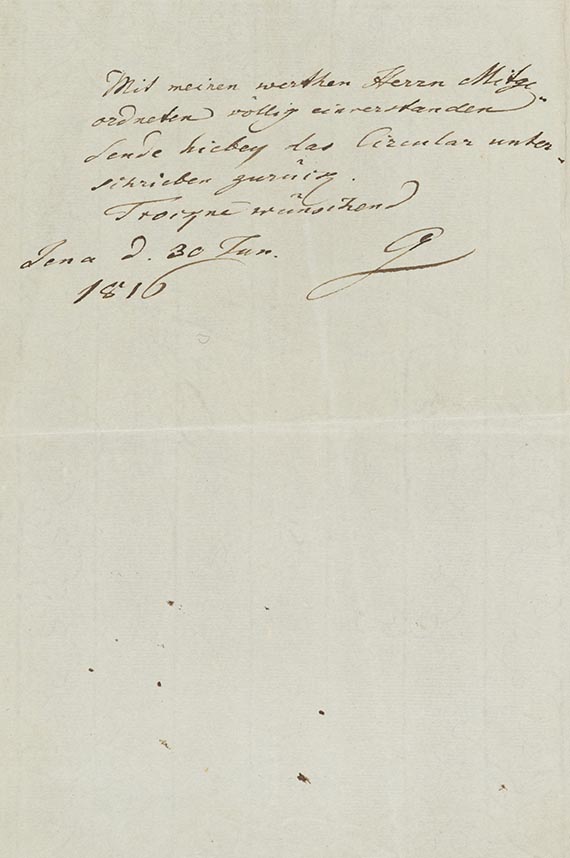 Mit meinen werthen Herrn Mitge-
ordneten völlig einverstanden
sende hiebey das Circular unter-
schrieben zurück.
wünschend
Jena d. 30 Jun.
G
1816